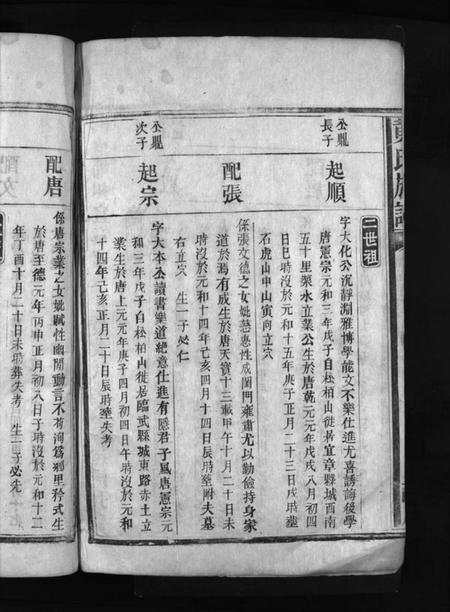 黄氏族譜
二世祖
公覞長子
起順
字大化公沉靜淵雅博學能文不樂仕進尤喜誘誨後學
唐憲宗元和三年戊子自松柏山徙居宜章縣城西南
五十里栗永立業公生於唐乾元元年戊戌八月初四
日巳時沒於元和十五年庚子正月二十三日戌時塟
石虎山申山寅向立穴
配張
係張文德之女妣慈惠性成閨門雍肅尤以勤儉持身家
道於焉有成生於唐天寶十三載甲午十月二十日未
時沒於元和十四年己亥四月十四日辰時塟附夫墓
右立穴 生一子必仁
公覞次子
起宗
字大本公讀書樂道絶意仕進有隱君子風唐憲宗元
和三年戊子自松柏山徙居臨武縣城東路赤土立
業生於唐上元元年庚子四月初四日午時沒於元和
十四年己亥正月二十日辰時塟失考
配唐
係唐宗業之女妣賦性幽閒動言不苟詢為鄉里矜式生
於唐至德元年丙申正月初八日子時沒於元和十二
年丁酉十月二十日未時葬失考 生一子必先